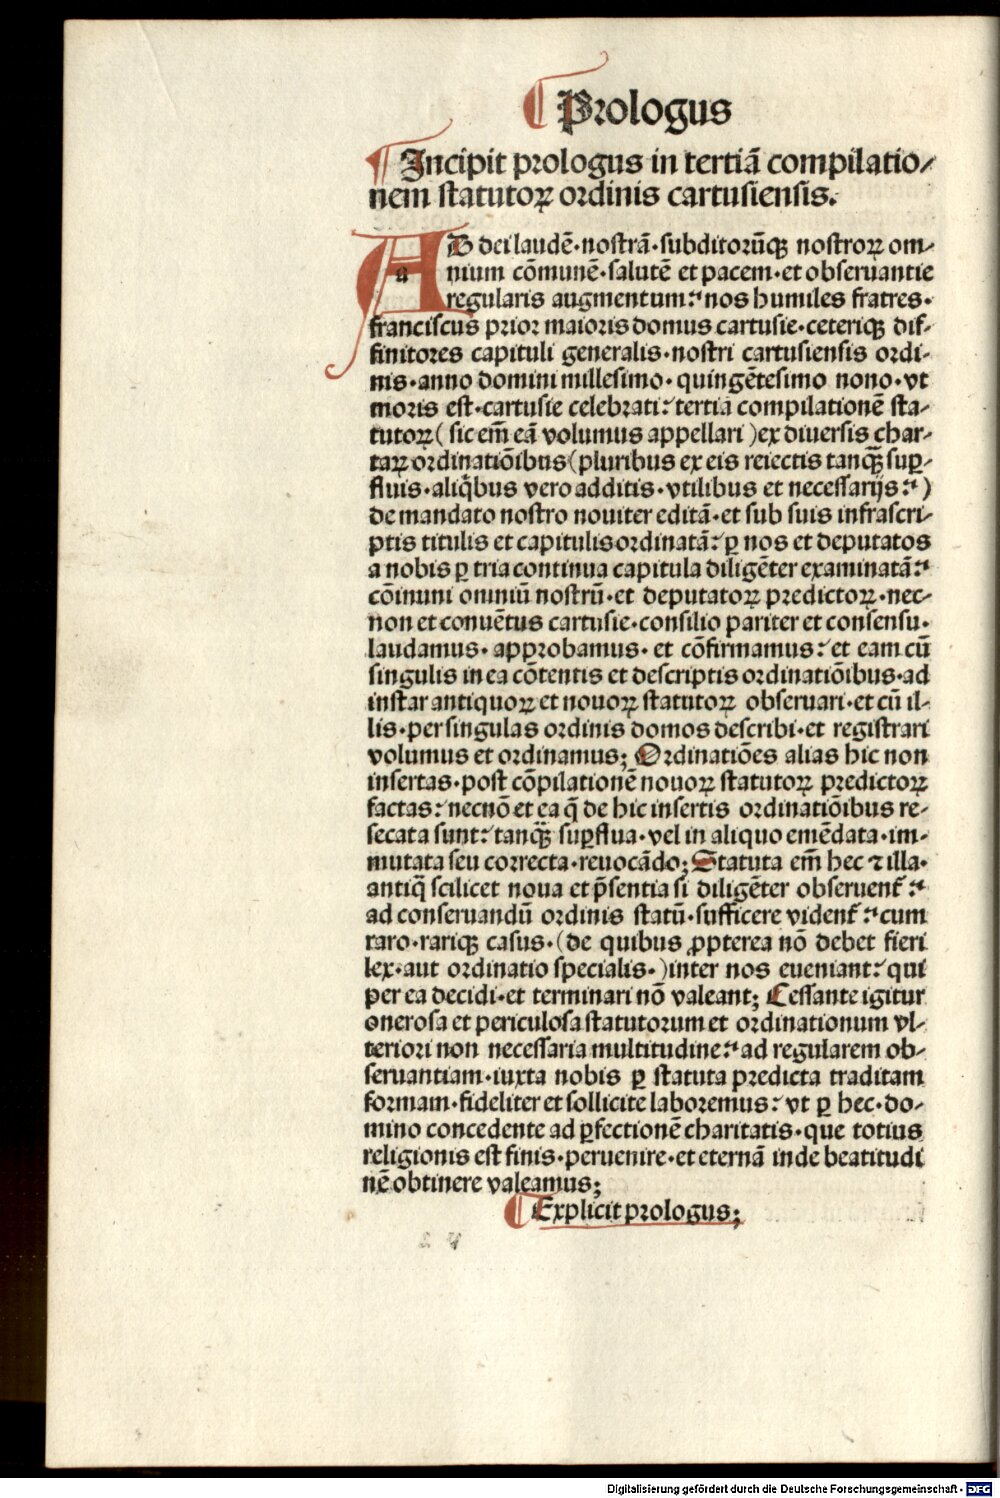 Prologus
Incipit prologus in tertiā compilatio⸗
nem statutoꝝ ordinis cartusiensis.
AD dei laudē·nostrā·subditorūqꝫ nostroꝝ om⸗
nium cōmunē·salutē et pacem·et obseruantie
regularis augmentum:nos humiles fratres·
franciscus prior maioris domus cartusie·ceteriqꝫ dif⸗
finitores capituli generalis·nostri cartusiensis ordi⸗
nis·anno domini millesimo·quingētesimo nono·vt
moris est·cartusie celebrati:tertiā compilationē sta⸗
tutoꝝ(sic em̄ eā volumus appellari)ex diuersis char⸗
taꝝ ordinatiōibus(pluribus ex eis reiectis tanqꝫ̄ suꝑ⸗
fluis·aliq̄bus vero additis·vtilibus et necessarijs:)
de mandato nostro nouiter editā·et sub suis infrascri⸗
ptis titulis et capitulis ordinatā:ꝑ nos et deputatos
a nobis ꝑ tria continua capitula diligēter examinatā:
cōmuni omniū nostrū·et deputatoꝝ predictoꝝ·nec⸗
non et conuētus cartusie·consilio pariter et consensu·
laudamus·approbamus·et cōfirmamus:et eam cū
singulis in ea cōtentis et descriptis ordinatiōibus·ad
instar antiquoꝝ et nouoꝝ statutoꝝ obseruari·et cū il⸗
lis·per singulas ordinis domos describi·et registrari
volumus et ordinamus; Ordinatiōes alias hic non
insertas·post cōpilationē nouoꝝ statutoꝝ predictoꝝ
factas:necnō et ea q̄ de hic insertis ordinatiōibus re⸗
secata sunt:tanqꝫ̄ suꝑflua·vel in aliquo emēdata·im⸗
mutata seu correcta·reuocādo; Statuta em̄ hec ⁊ illa·
antiq̄ scilicet noua et p̄sentia si diligēter obseruent̄:
ad conseruandū ordinis statū·sufficere vident̄:cum
raro·rariqꝫ casus·(de quibus ꝓpterea nō debet fieri
lex·aut ordinatio specialis·)inter nos eueniant:qui
per ea decidi·et terminari nō valeant; Cessante igitur
onerosa et periculosa statutorum et ordinationum vl⸗
teriori non necessaria multitudine:ad regularem ob⸗
seruantiam·iuxta nobis ꝑ statuta predicta traditam
formam·fideliter et sollicite laboremus:vt ꝑ hec·do⸗
mino concedente ad ꝑfectionē charitatis·que totius
religionis est finis·peruenire·et eternā inde beatitudi
nē obtinere valeamus;
Explicit prologus;
Digitalisierung gefördert durch die Deutsche Forschungsgemeinschaft - DFG